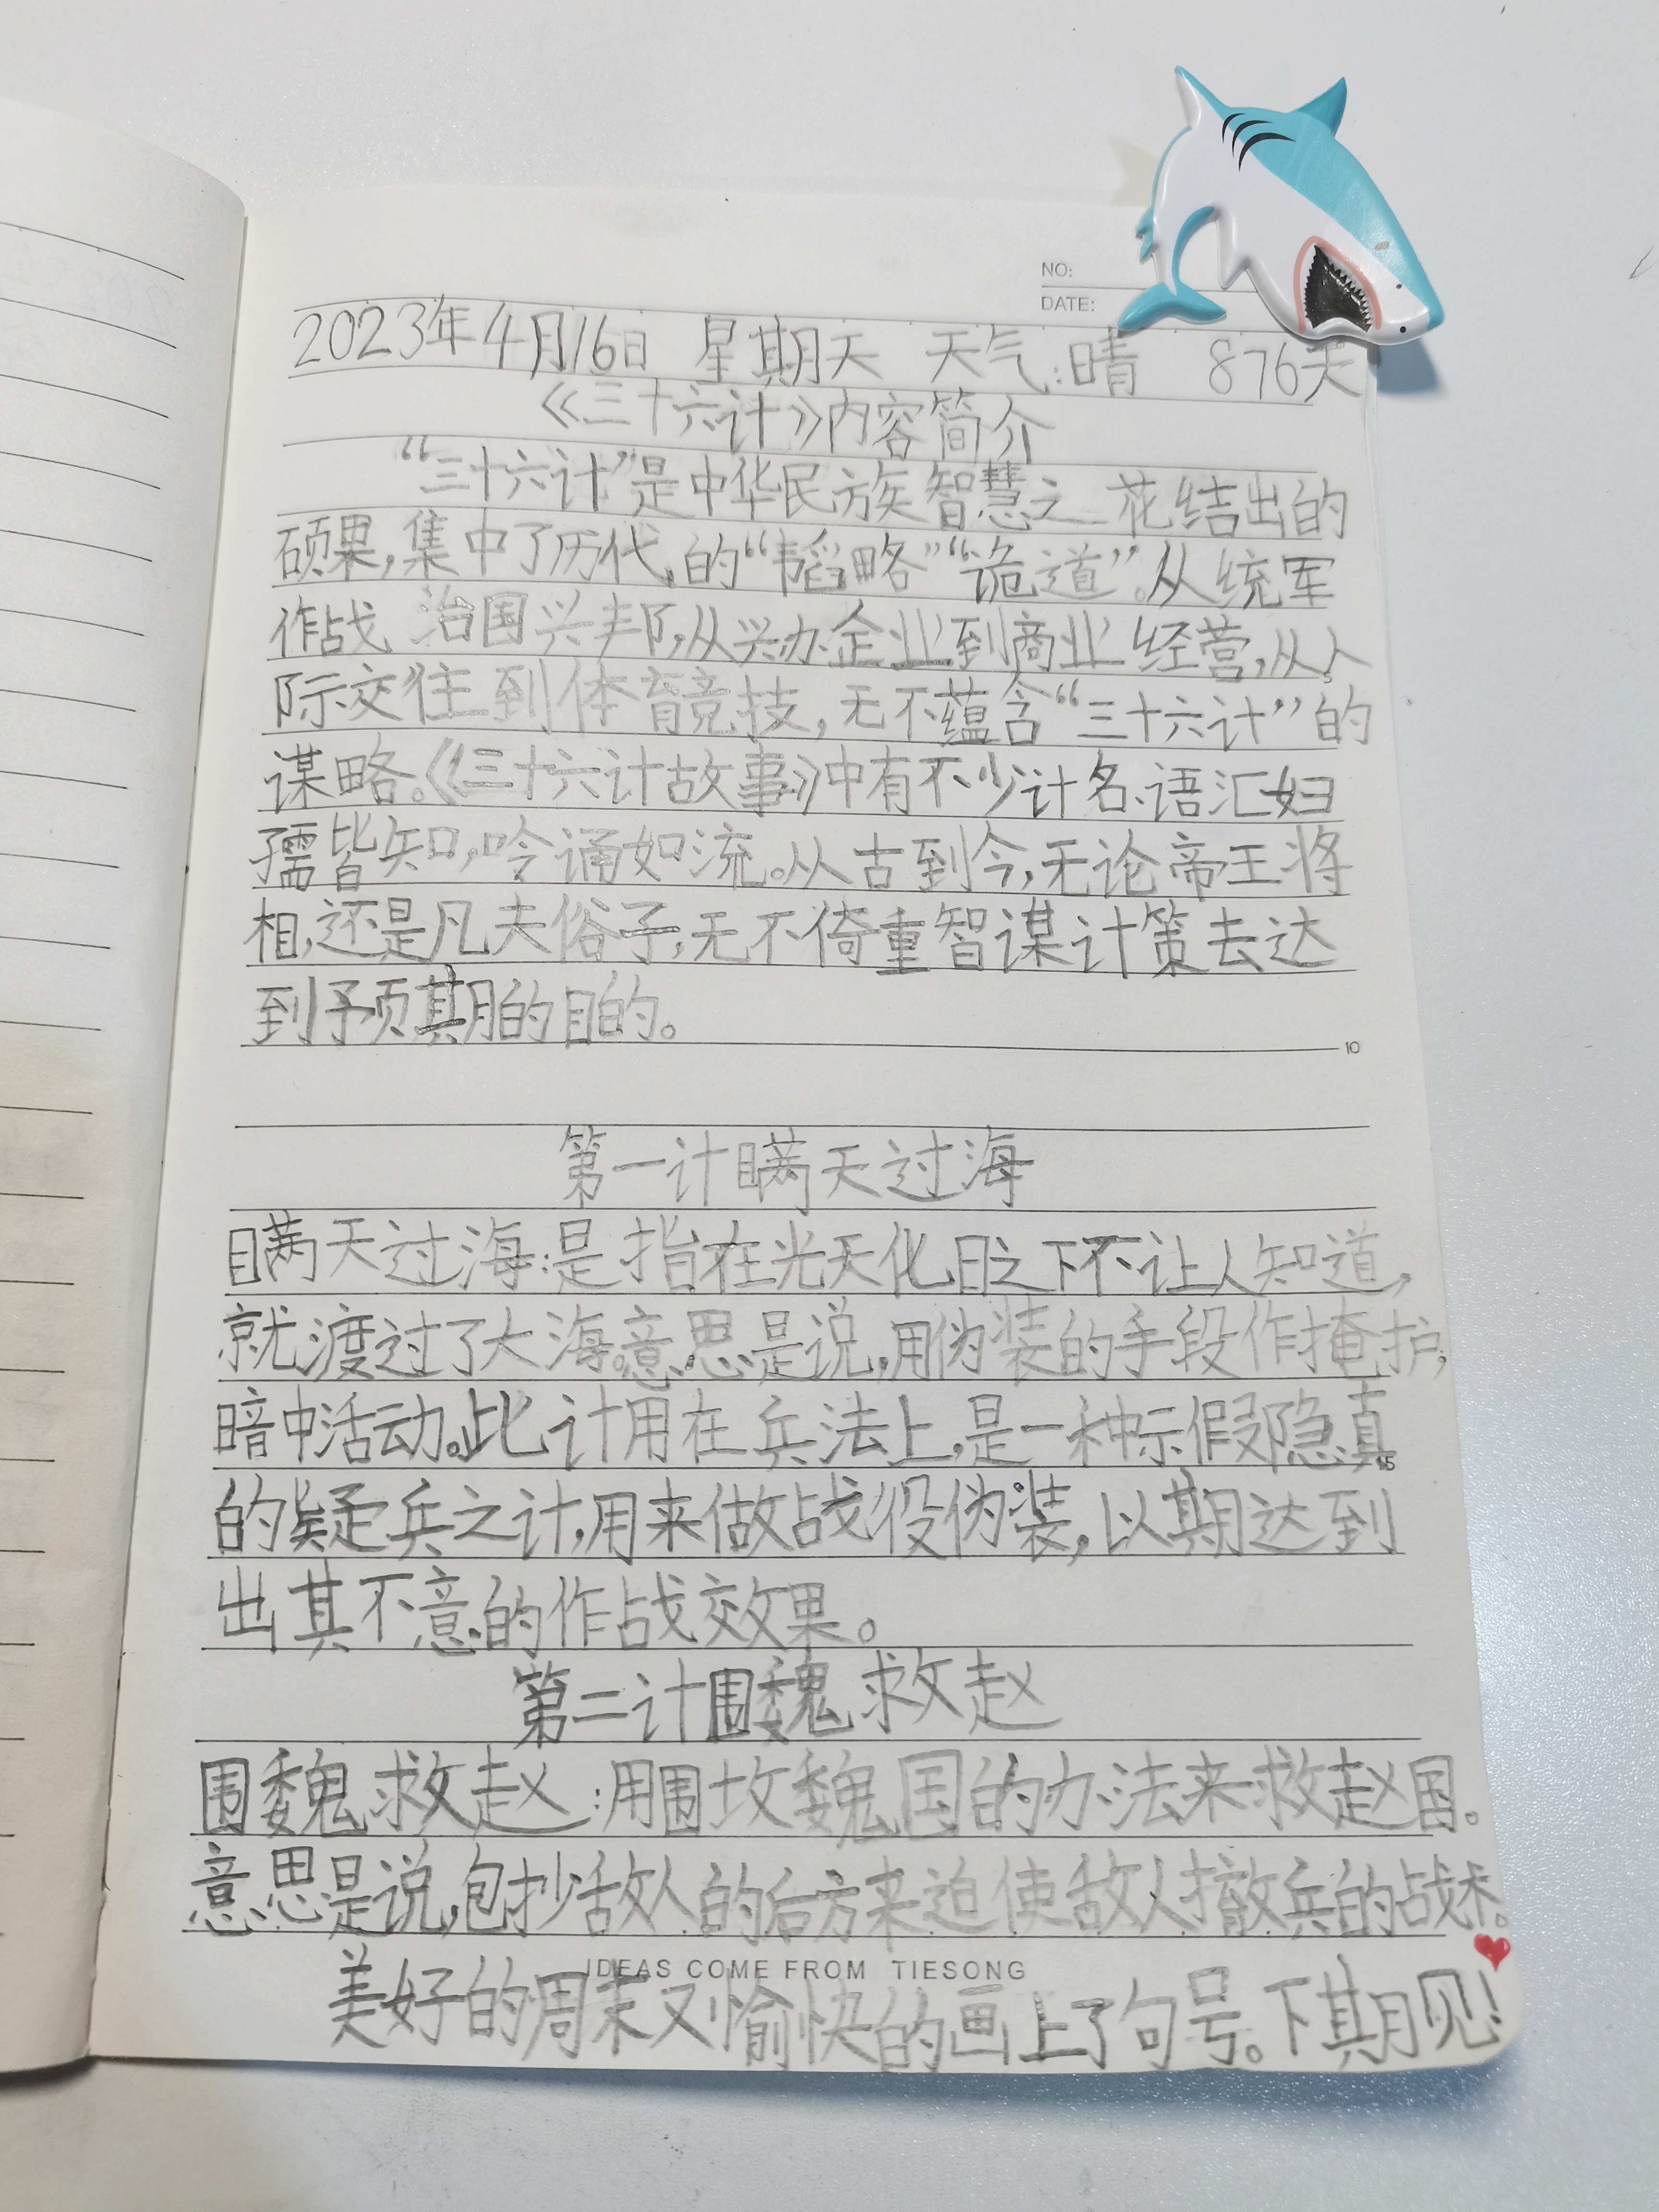 NO:
DATE:
2023年4月16日 星期天 天气:晴 876天
《三十六计》内容简介
“三十六计”是中华民族智慧之花结出的
硕果,集中了历代的“韬略”“诡道”。从统军
作战 治国兴邦,从兴办企业到商业经营,从人
际交往到体育竞技,无不蕴含“三十六计”的
谋略。《三十六计故事》中有不少计名、语汇妇
孺皆知,吟诵如流。从古到今,无论帝王将
相,还是凡夫俗子,无不倚重智谋计策去达
到予页期的目的。
10
第一计瞒天过海
瞒天过海:是指在光天化日之下不让人知道,
就渡过了大海。意思是说,用伪装的手段作掩护,
暗中活动。此计用在兵法上,是一种示假隐真
15
的疑兵之计,用来做战役伪装,以期达到
出其不意的作战效果。
第二计围魏救赵
围魏救赵:用围攻魏国的办法来救赵国。
意思是说,包抄敌人的后方来迫使敌人撤兵的战术。
IDEAS COME FROM TIESONG
美好的周末又愉快的画上了句号。下期见!